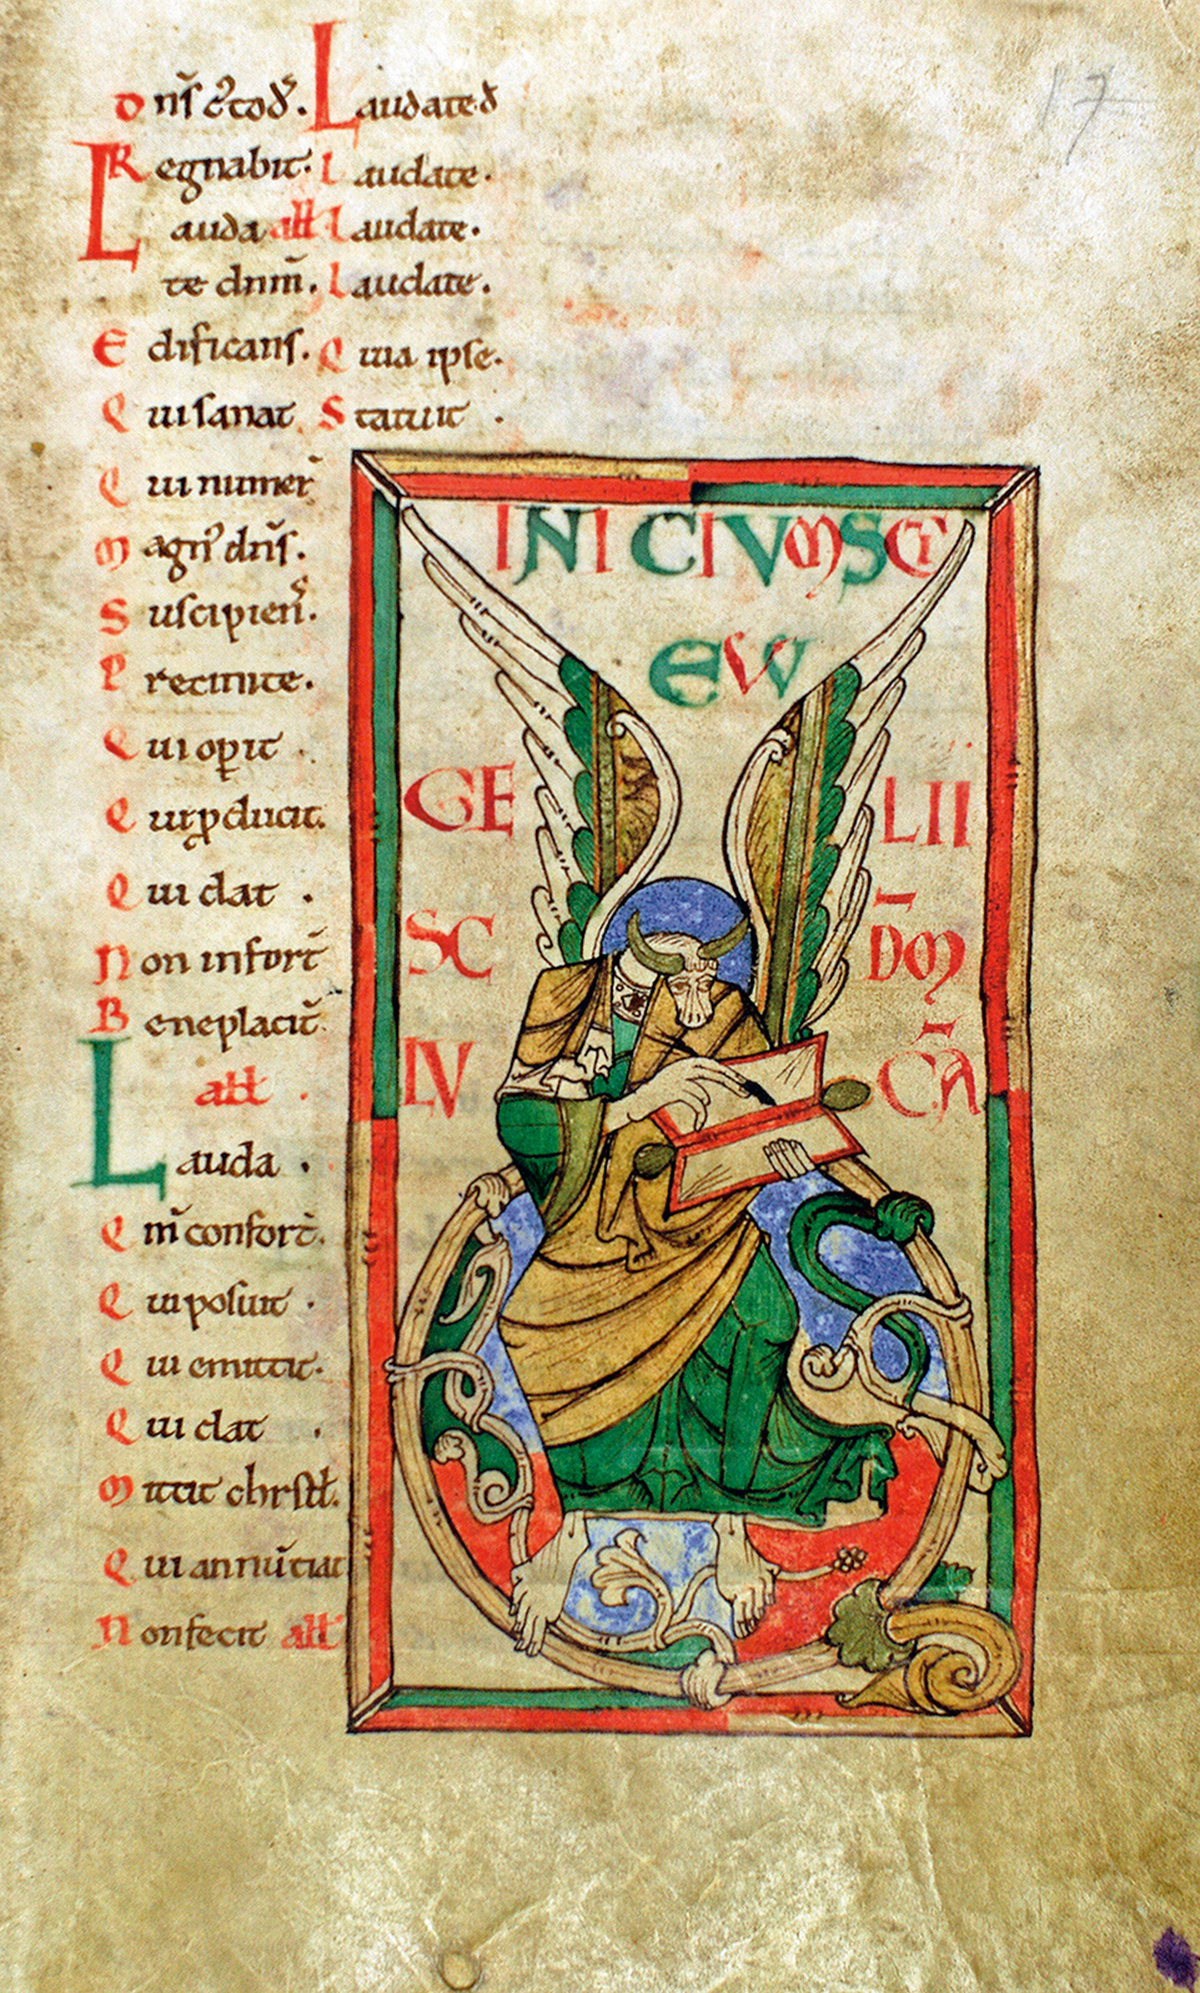 17
Dn̄s c̄tod̄s. Laudate d̄
Regnabit. Laudate.
Lauda all̄ Laudate.
te dnm̄. Laudate.
Edificans. Quia ipse.
Qui sanat Statuit .
Qui numer̄
Magn᾿ dn̄s.
Suscipien̄s.
Precinite.
Qui oꝑit .
Qui ꝓducit.
Qui dat .
Non in fort̄
Beneplacit̄.
all̄ .
Lauda .
Qm̄ confort̄.
Qui posuit .
Qui emittit.
Qui dat .
Mittit christ̄.
Qui annūtiat
Non fecit all̄
INICIVM SC̄I
EVV
GE LII
SC D̄M
LV C̄A